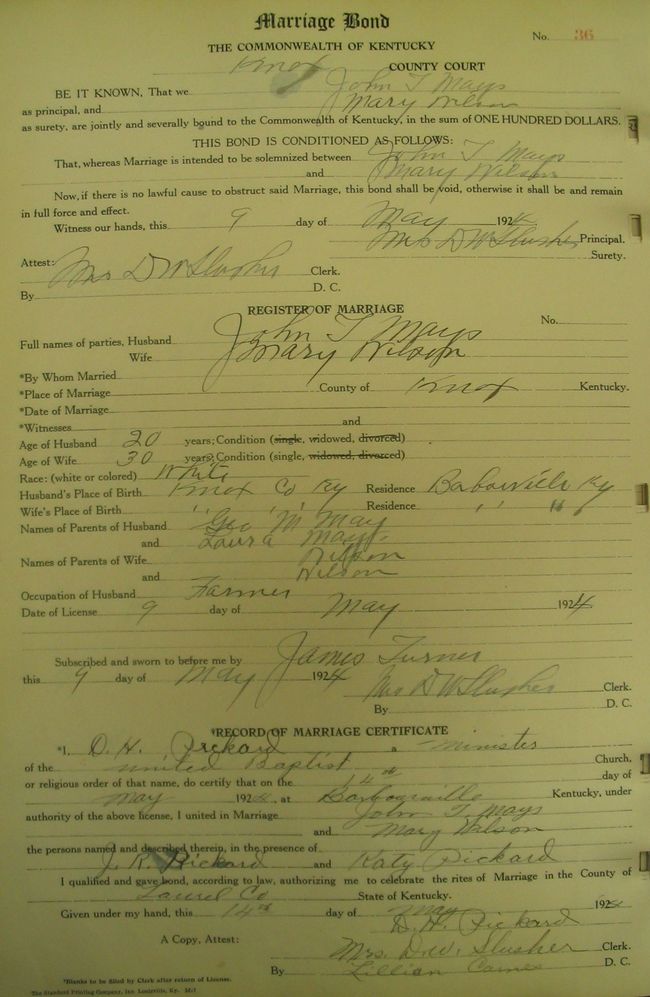 Marriage Bond
No. 36
THE COMMONWEALTH OF KENTUCKY
Knox COUNTY COURT
BE IT KNOWN, That we John T Mays
as principal, and Mary Wilson
as surety, are jointly and severally bound to the Commonwealth of Kentucky, in the sum of ONE HUNDRED DOLLARS.
THIS BOND IS CONDITIONED AS FOLLOWS:
That, whereas Marriage is intended to be solemnized between John T Mays
and Mary Wilson
Now, if there is no lawful cause to obstruct said Marriage, this bond shall be void, otherwise it shall be and remain
in full force and effect.
Witness our hands, this 9 day of May 1924
Mrs D W Slusher Principal.
Surety.
Attest: Mrs D W Slusher Clerk.
By D. C.
REGISTER OF MARRIAGE
No.
Full names of parties, Husband John T Mays
Wife Mary Wilson
*By Whom Married
*Place of Marriage County of Knox Kentucky.
*Date of Marriage
*Witnesses and
Age of Husband 20 years; Condition (single, widowed, divorced)
Age of Wife 30 years; Condition (single, widowed, divorced)
Race: (white or colored) White
Husband's Place of Birth Knox Co Ky Residence Barbourville Ky
Wife's Place of Birth " " " Residence " "
Names of Parents of Husband Geo M May
and Laura Mays
Names of Parents of Wife Wilson
and Wilson
Occupation of Husband Farmer
Date of License 9 day of May 1924
Subscribed and sworn to before me by James Turner
this 9 day of May 1924
Mrs D W Slusher Clerk.
By D. C.
*RECORD OF MARRIAGE CERTIFICATE
*I, D. H. Pickard a minister
of the United Baptist Church,
or religious order of that name, do certify that on the 14th day of
May 1924, at Barbourville Kentucky, under
authority of the above license, I united in Marriage John T Mays
and Mary Wilson
the persons named and described therein, in the presence of
J. R. Pickard and Katy Pickard
I qualified and gave bond, according to law, authorizing me to celebrate the rites of Marriage in the County of
Laurel Co State of Kentucky.
Given under my hand, this 14th day of May 1924
D. H. Pickard
A Copy, Attest: Mrs. D.W. Slusher Clerk.
By Lillian D. C.
*Blanks to be filled by Clerk after return of License.
The Standard Printing Company, Inc. Louisville, Ky.